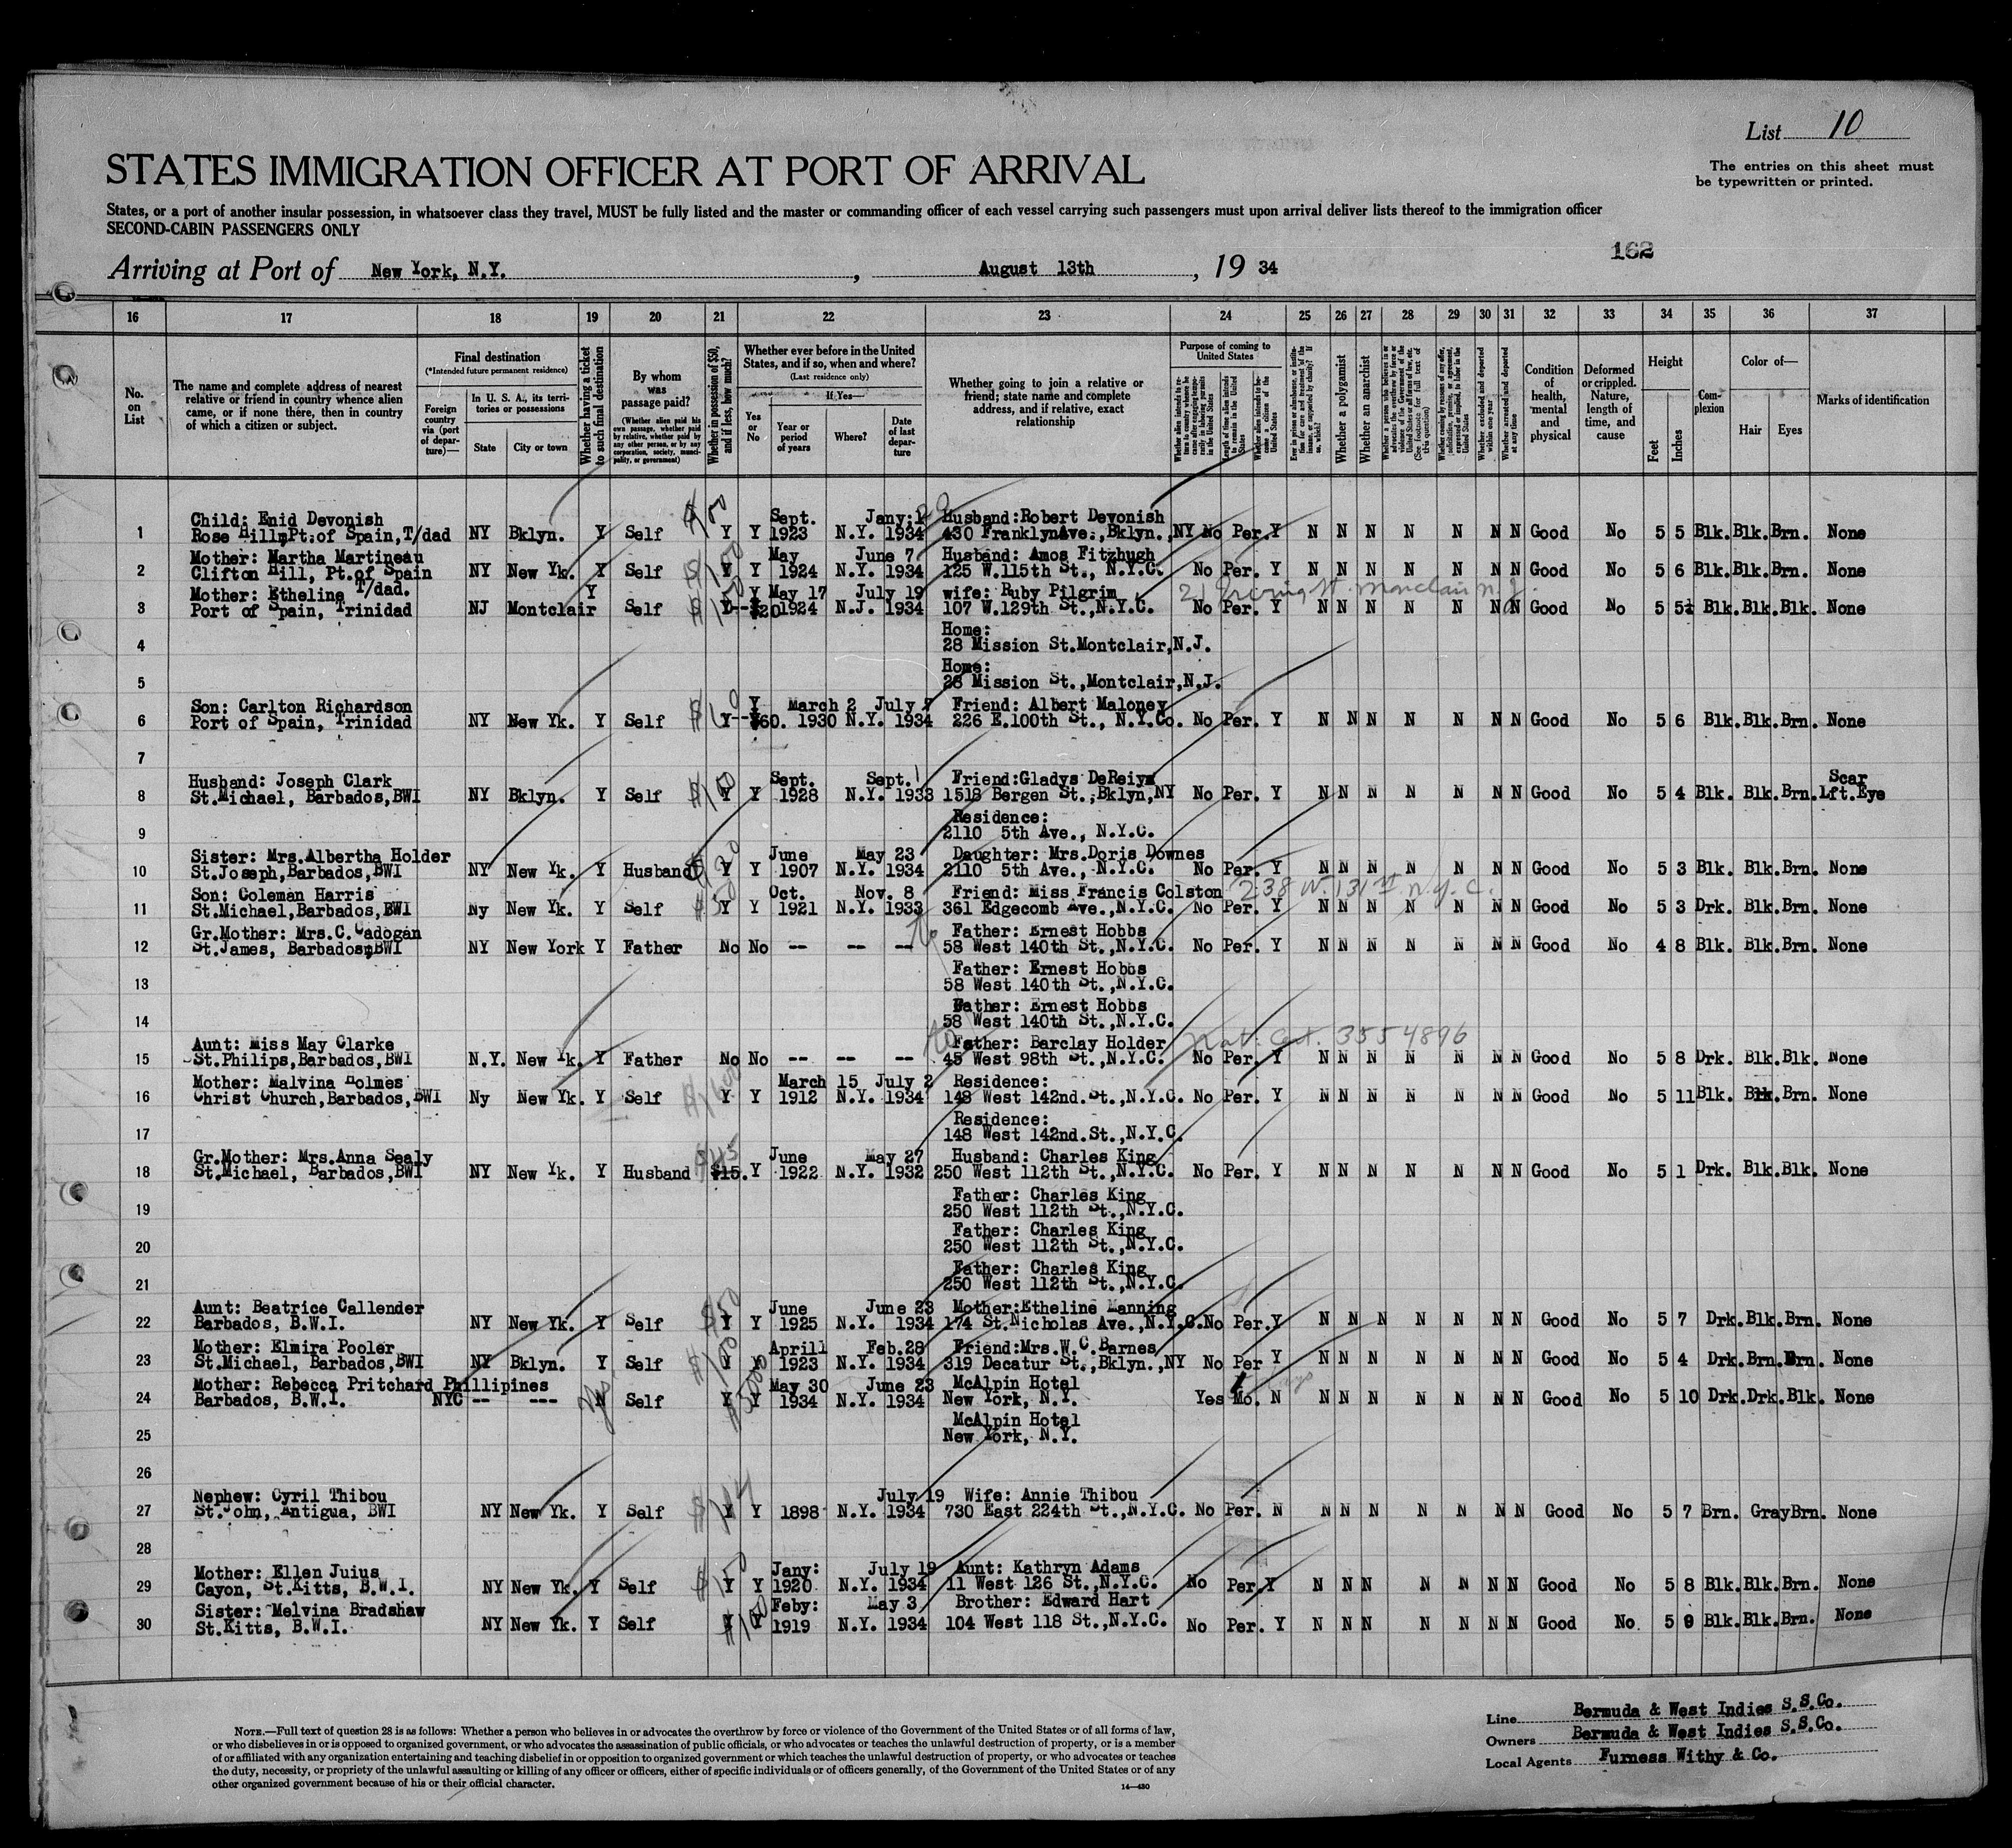 List 10
STATES IMMIGRATION OFFICER AT PORT OF ARRIVAL
The entries on this sheet must
be typewritten or printed.
States, or a port of another insular possession, in whatsoever class they travel, MUST be fully listed and the master or commanding officer of each vessel carrying such passengers must upon arrival deliver lists thereof to the immigration officer
SECOND-CABIN PASSENGERS ONLY
162
Arriving at Port of New York, N.Y. , August 13th , 19 34
16 17 18 19 20 21 22 23 24 25 26 27 28 29 30 31 32 33 34 35 36 37
No. on List
The name and complete address of nearest relative or friend in country whence alien came, or if none there, then in country of which a citizen or subject.
Final destination
(*Intended future permanent residence)
Foreign country via (port of departure)—
In U. S. A., its territories or possessions
State
City or town
Whether having a ticket to such final destination
By whom was passage paid?
(Whether alien paid his own passage, whether paid by relative, whether paid by any other person, or by any corporation, society, municipality, or government)
Whether in possession of $50, and if less, how much?
Whether ever before in the United States, and if so, when and where?
(Last residence only)
If Yes—
Yes or No
Year or period of years
Where?
Date of last departure
Whether going to join a relative or friend; state name and complete address, and if relative, exact relationship
Purpose of coming to United States
Length of time alien intends to remain in the United States
Whether alien intends to become a citizen of the United States
Whether a polygamist
Whether an anarchist
Whether excluded and deported within one year
Whether arrested and deported at any time
Condition of health, mental and physical
Deformed or crippled. Nature, length of time, and cause
Height
Feet
Inches
Complexion
Color of—
Hair
Eyes
Marks of identification
Child: Enid Devonish Sept. Jany: Husband:Robert Devonish
1 Rose Hill, Pt.of Spain,T/dad NY Bklyn. Y Self Y Y 1923 N.Y. 1934 430 FranklynAve.,Bklyn.,NY No Per. Y N N N N N N N Good No 5 5 Blk. Blk. Brn. None
Mother: Martha Martineau May June 7 Husband: Amos Fitzhugh
2 Clifton Hill, Pt.of Spain NY New Yk. Y Self $100 Y Y 1924 N.Y. 1934 125 W.115th St., N.Y.C. No Per. Y N N N N N N N Good No 5 6 Blk. Blk. Brn. None
Mother: Etheline T/dad. Y Y May 17 July 19 wife: Ruby Pilgrim
3 Port of Spain, Trinidad NJ Montclair Self Y--$20 1924 N.J. 1934 107 W.129th St.,N.Y.C. No Per. Y N N N N N N N Good No 5 5½ Blk. Blk. Blk. None
Home:
4 28 Mission St.Montclair,N.J.
Home:
5 28 Mission St.,Montclair,N.J.
Son: Carlton Richardson Y March 2 July 7 Friend: Albert Maloney
6 Port of Spain, Trinidad NY New Yk. Y Self Y--$60. 1930 N.Y. 1934 226 E.100th St., N.Y.Co. No Per. Y N N N N N N N Good No 5 6 Blk. Blk. Brn. None
7
Husband: Joseph Clark Sept. Sept. Friend:Gladys DeReiym Scar
8 St.Michael, Barbados,BWI NY Bklyn. Y Self $100 Y Y 1928 N.Y. 1933 1518 Bergen St.,Bklyn,NY No Per. Y N N N N N N N Good No 5 4 Blk. Blk. Brn. Lft.Eye
Residence:
9 2110 5th Ave., N.Y.C.
Sister: Mrs.Albertha Holder June May 23 Daughter: Mrs.Doris Downes
10 St.Joseph,Barbados,BWI NY New Yk. Y Husband Y Y 1907 N.Y. 1934 2110 5th Ave., N.Y.C. No Per. Y N N N N N N N Good No 5 3 Blk. Blk. Brn. None
Son: Coleman Harris Oct. Nov. 8 Friend: Miss Francis Colston 238 W. 131 st N.Y.C.
11 St.Michael,Barbados,BWI Ny New Yk. Y Self Y Y 1921 N.Y. 1933 361 Edgecomb Ave.,N.Y.C. No Per. Y N N N N N N N Good No 5 3 Drk. Blk. Brn. None
Gr.Mother: Mrs.C.Cadogan Father: Ernest Hobbs
12 St.James, Barbados,BWI NY New York Y Father No No -- -- -- 58 West 140th St.,N.Y.C. No Per. Y N N N N N N N Good No 4 8 Blk. Blk. Brn. None
Father: Ernest Hobbs
13 58 West 140th St.,N.Y.C.
Father: Ernest Hobbs
14 58 West 140th St.,N.Y.C.
Aunt: Miss May Clarke Father: Barclay Holder Nat. Cert. 3554896
15 St.Philips,Barbados,BWI N.Y. New Yk. Y Father No No -- -- -- 45 West 98th St.,N.Y.C. No Per. Y N N N N N N N Good No 5 8 Drk. Blk. Blk. None
Mother: Malvina Holmes March 15 July 2 Residence:
16 Christ Church,Barbados,BWI Ny New Yk. Y Self Y Y 1912 N.Y. 1934 148 West 142nd.St.,N.Y.C. No Per. Y N N N N N N N Good No 5 11 Blk. Blk. Brn. None
Residence:
17 148 West 142nd.St.,N.Y.C.
Gr.Mother: Mrs.Anna Sealy June May 27 Husband: Charles King
18 St.Michael, Barbados,BWI NY New Yk. Y Husband $15. Y 1922 N.Y. 1932 250 West 112th St.,N.Y.C. No Per. Y N N N N N N N Good No 5 1 Drk. Blk. Blk. None
Father: Charles King
19 250 West 112th St.,N.Y.C.
Father: Charles King
20 250 West 112th St.,N.Y.C.
Father: Charles King
21 250 West 112th St.,N.Y.C.
Aunt: Beatrice Callender June June 23 Mother:Etheline Manning
22 Barbados, B.W.I. NY New Yk. Y Self $50 Y Y 1925 N.Y. 1934 174 St.Nicholas Ave.,N.Y.C. No Per. Y N N N N N N N Good No 5 7 Drk. Blk. Brn. None
Mother: Elmira Pooler Aprill Feb.28 Friend:Mrs.W.C.Barnes
23 St.Michael, Barbados,BWI NY Bklyn. Y Self $100 Y Y 1923 N.Y. 1934 319 Decatur St.,Bklyn.,NY No Per Y N N N N N N N Good No 5 4 Drk. Brn. Brn. None
Mother: Rebecca Pritchard Phillipines May 30 June 23 McAlpin Hotel
24 Barbados, B.W.I. NYC -- --- N Self Y Y 1934 N.Y. 1934 New York, N.Y. Yes Mo. N N N N N N N N Good No 5 10 Drk. Drk. Blk. None
McAlpin Hotel
25 New York, N.Y.
26
Nephew: Cyril Thibou July 19 Wife: Annie Thibou
27 St.John, Antigua, BWI NY New Yk. Y Self Y Y 1898 N.Y. 1934 730 East 224th St.,N.Y.C. No Per. N N N N N N N N Good No 5 7 Brn. Gray Brn. None
28
Mother: Ellen Juius Jany: July 19 Aunt: Kathryn Adams
29 Cayon, St.Kitts, B.W.I. NY New Yk. Y Self Y Y 1920 N.Y. 1934 11 West 126 St.,N.Y.C. No Per. Y N N N N N N N Good No 5 8 Blk. Blk. Brn. None
Sister: Melvina Bradshaw Feby: May 3 Brother: Edward Hart
30 St.Kitts, B.W.I. NY New Yk. Y Self $100 Y Y 1919 N.Y. 1934 104 West 118 St.,N.Y.C. No Per. Y N N N N N N N Good No. 5 9 Blk. Blk. Brn. None
NOTE.—Full text of question 28 is as follows: Whether a person who believes in or advocates the overthrow by force or violence of the Government of the United States or of all forms of law,
or who disbelieves in or is opposed to organized government, or who advocates the assassination of public officials, or who advocates or teaches the unlawful destruction of property, or is a member
of or affiliated with any organization entertaining and teaching disbelief in or opposition to organized government or which teaches the unlawful destruction of property, or who advocates or teaches
the duty, necessity, or propriety of the unlawful assaulting or killing of any officer or officers, either of specific individuals or of officers generally, of the Government of the United States or of any
other organized government because of his or their official character.
14—430
Line Bermuda & West Indies S.S.Co.
Owners Bermuda & West Indies S.S.Co.
Local Agents Furness Withy & Co.